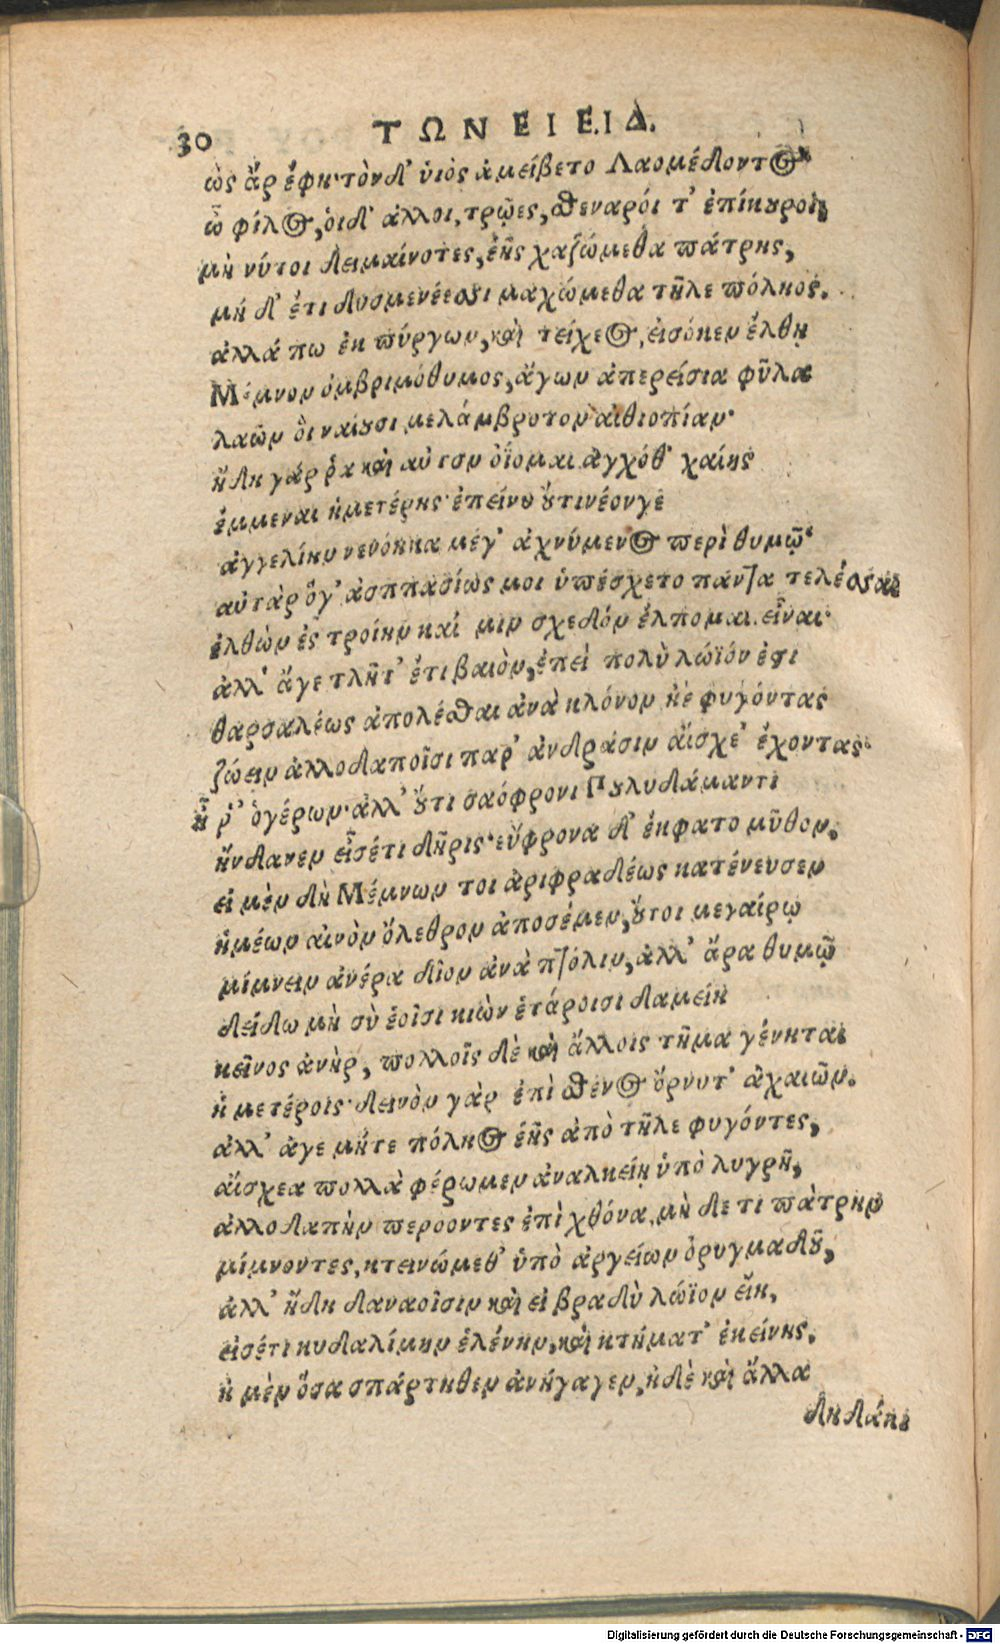 30
ΤΩΝ ΕΙΕ.ΙΔ.
ὡς ἄρ ἔφη· τὸν δ' ὑιὸς ἀμείβετο Λαομέδοντος
ὦ φίλος, ὁιδ' ἄλλοι, τρῷες, σθεναρόι τ' ἐπίκουροι,
μὴ νύτοι δειμαίνοτες, ἑῆς χαζώμεθα πάτρης,
μή δ' ἔτι δυσμενέεσσι μαχώμεθα τῆλε πόληος.
ἀλλά πω ἐκ πύργων, καὶ τείχεος, εἰσόκεν ἔλθῃ
Μέμνον ὀμβριμόθυμος, ἄγων ἀπερείσια φῦλα
λαῶν ὃι ναίουσι μελάμβροτον αἰθιοπίαν·
ἤδη γάρ ῥα καὶ αὐτσν ὀΐομαι ἀγχόθ' χαίης
ἔμμεναι ἡμετέρης· ἐπείνυ οὔτινέονγε
ἀγγελίην νενόηκα μέγ' ἀχνύμενος περὶ θυμῷ·
αὐτὰρ ὅγ' ἀσππασίως μοι ὑπέσχετο πάντα τελέσσαι
ἐλθὼν ἐς τροίην καί μιν σχεδόν ἔλπομαι εἶναι·
ἀλλ' ἄγε τλῆτ' ἔτι βαιὸν, ἐπεὶ πολὺ λώϊόν ἐστι
θαρσαλέως ἀπολέσθαι ἀνὰ κλόνον ἠὲ φυγόντας
ζώειν ἀλλοδαποῖσι παρ' ἀνδράσιν ἄισχε' ἔχοντας·
ἦ ῥ' ὁγέρων· ἀλλ' οὔτι σαόφρονι Πουλυδάμαντι
ἥνδανεν εἶσέτι δῆρις· εὔφρονα δ' ἔκφατο μῦθον.
εἰ μὲν δὴ Μέμνων τοι ἀριφραδέως κατένευσεν
ἡμέων αἰνὸν ὄλεθρον ἀποσέμεν, οὔτοι μεγαίρῳ
μίμνειν ἀνέρα δῖον ἀνὰ πτόλιν, ἀλλ' ἄρα θυμῷ
δείδω μὴ σὺ ἑοῖσι κιὼν ἑτάροισι δαμείη
κεῖνος ἀνὴρ, πολλοῖς δὲ καὶ ἄλλοις πῆμα γένηται
ἡμετέροις· δεινὸν γὰρ ἐπὶ σθένος ὄρνυτ' ἀχαιῶν.
ἀλλ' ἄγε μήτε πόληος ἑῆς ἀπὸ τῆλε φυγόντες,
αἴσχεα πολλὰ φέρωμεν ἀναλκείῃ ὑπὸ λυγρῆ,
ἀλλοδαπὴν περοοντες ἐπὶ χθόνα, μὴ δε τι πάτρην
μίμνοντες, κτεινώμεθ' ὑπὸ ἀργείων ὀρυγμαδοῦ,
ἀλλ' ἤδη δαναοῖσιν καὶ εἰ βραδὺ λώϊον εἴη,
εἰσέτι κυδαλίμην ἑλένην, καὶ κτήματ' ἐκείνης.
ἠ μὲν ὅσα σπάρτηθεν ἀνήγαγεν, ἠδὲ καὶ ἄλλα
δηδάκι
Digitalisierung gefördert durch die Deutsche Forschungsgemeinschaft - DFG